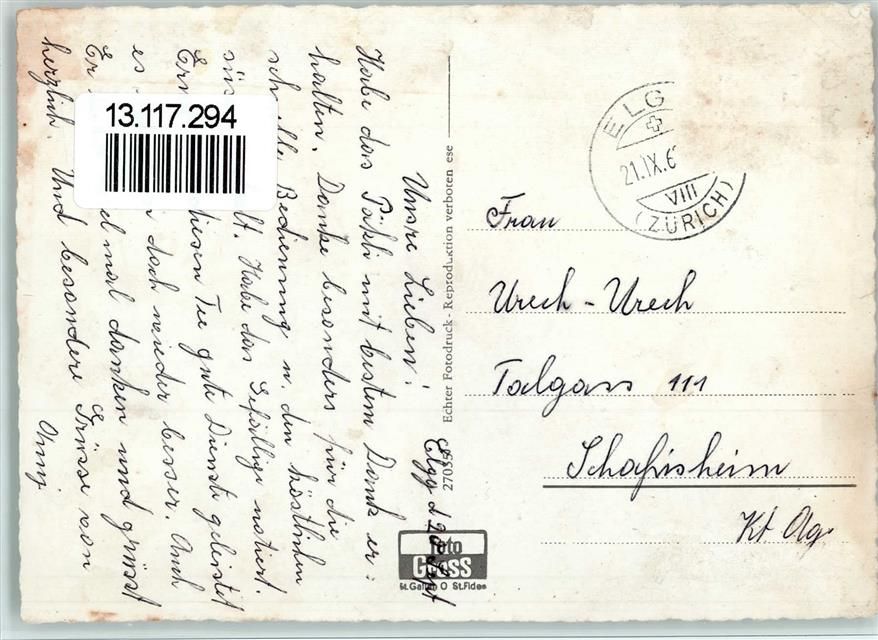 Elgg d 20. Sept
Unsre Lieben!
Habe das Päkli mit bestem Dank er:
halten. Danke besonders für die
Bedienung u. den köstlichen
Habe das Gefällige notiert.
diesen Tee gute Dienste geleistet
doch wieder besser. Auch
Er mal danken und grüsst
herzlich. Und besondere Grüsse von
Anny.
13.117.294
27035
Echter Fotodruck - Reproduktion verboten ese
foto
Gross
St.Gallen O St.Fiden
ELG
21.IX.6
VIII
(ZÜRICH)
Frau
Urech - Urech
Talgass 111
Schafisheim
Kt Ag.